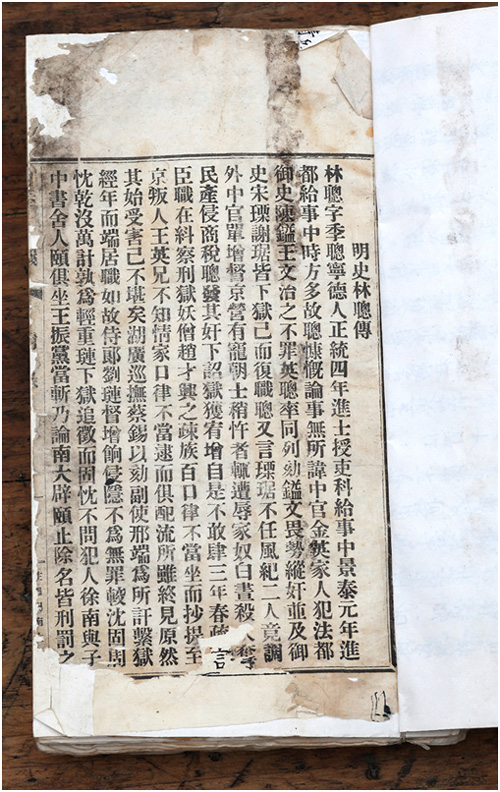 明史林聰傳
林聰字季聰寧德人正統四年進士授吏科給事中景泰元年進
都給事中時方多故聰慷慨論事無所諱中官金英家人犯法都
御史陳鎰王文治之不罪英聰率同列劾鎰文畏勢縱奸並及御
史宋瑮謝琚皆下獄已而復職聰又言瑮琚不任風紀二人竟調
外中官單增督京營有寵朝士稍忤者輒遭辱家奴白晝殺人奪
民產侵商稅聰發其奸下詔獄獲宥增自是不敢肆三年春疏言
臣職在糾察刑獄妖僧趙才興之疎族百口律不當坐而抄提至
京叛人王英兄不知情家口律不當逮而俱配流所雖終見原然
其始受害已不堪矣湖廣巡撫蔡錫以劾副使邢端為所訐繫獄
經年而端居職如故侍郎劉璉督增餉侵隱不為無罪較沈固周
忱乾沒萬計孰為輕重璉下獄追徵而固忱不問犯人徐南與子
中書舍人頤俱坐王振黨當斬乃論南大辟頤止除名皆刑罰之